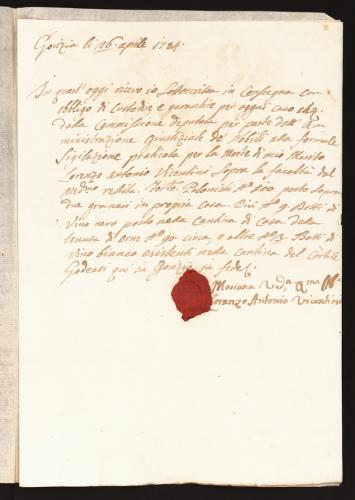 Gorizia li 26 aprile 1784.
In quest'oggi ricevo io Sottoscritta in Consegna con
obbligo di Custodire e garantire per ogni caso
dalla Commissione deputata per parte dell' Am
ministrazione Giustiziale de Nobili alla formale
Sigilazione praticata per la Morte di mio Marito
Lorenzo Antonio Vicentini sopra la facoltà del
Medeo posto sopra
due granari in propria Casa. Più Nº 9 Botti di
Vino nero poste nella Cantina di Casa della
tenuta di Orne Nº 90. circa, e altre Nº 3. Botti di
Vino bianco esistenti nella Cantina del Cortile
qui in Gorizia in fede.
Mariana Vda qm
Lorenzo Antonio Vicentini